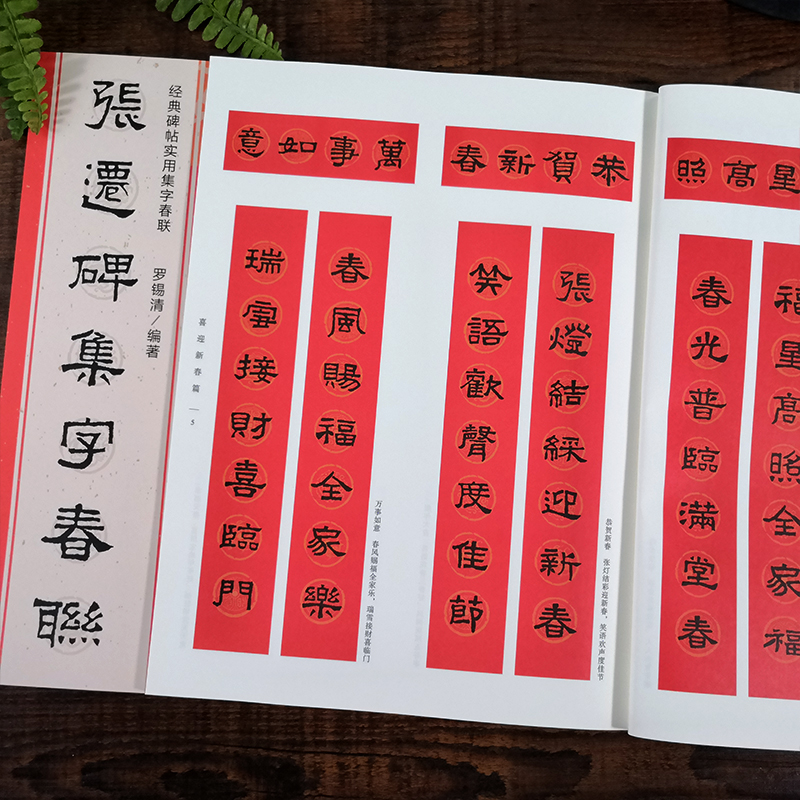 经典碑帖实用集字春联
罗锡清/编著
張遷碑集字春聯
恭賀新春
張燈結綵迎新春
笑語歡聲度佳節
恭贺新春 张灯结彩迎新春，笑语欢声度佳节
萬事如意
春風賜福全家樂
瑞雪接財喜臨門
万事如意 春风赐福全家乐，瑞雪接财喜临门
喜迎新春篇 — 5
星高照
福星高照全家福
春光普臨滿堂春